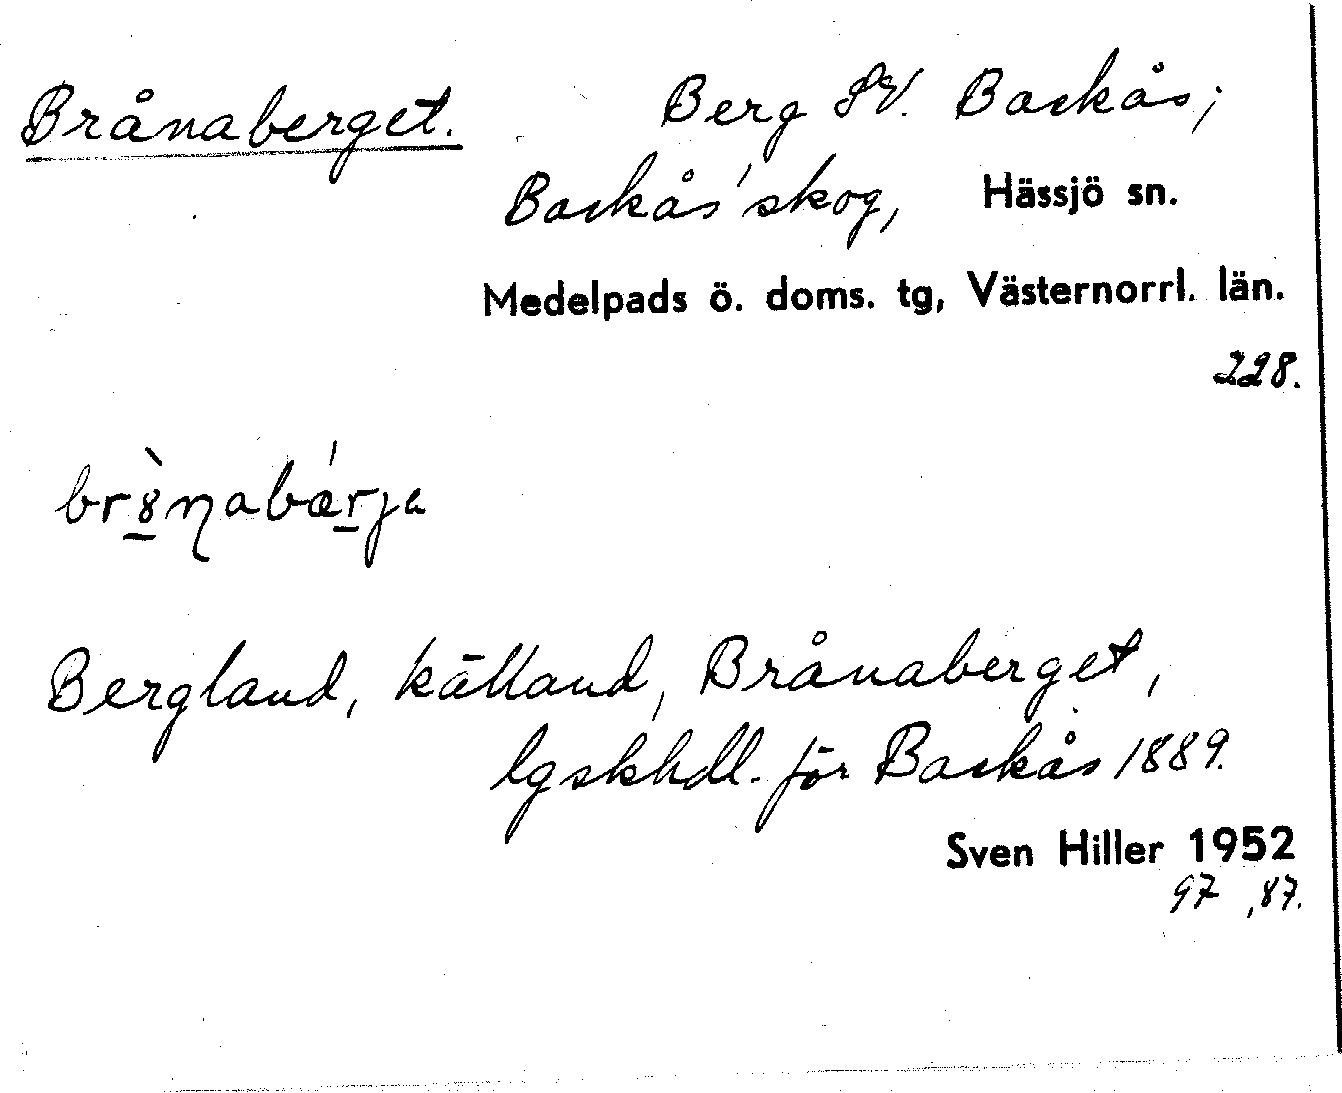 Brånaberget. Berg SV. Backås;
Backås' skog, Hässjö sn.
Medelpads ö. doms. tg, Västernorrl. län.
228.
Bergland, källand, Brånaberget,
lgskhdl. för Backås 1889.
Sven Hiller 1952
97 , 87.